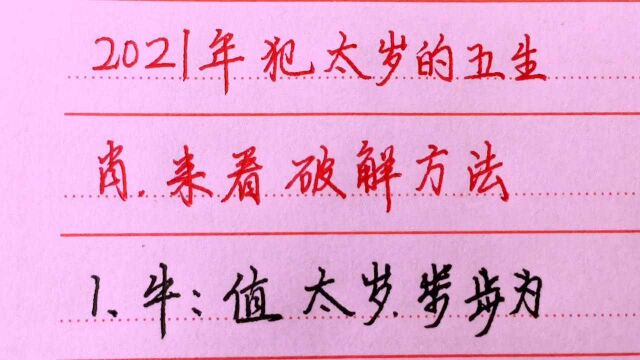 2021年犯太岁的五生
肖.来看破解方法
1、牛:值太岁.步步为